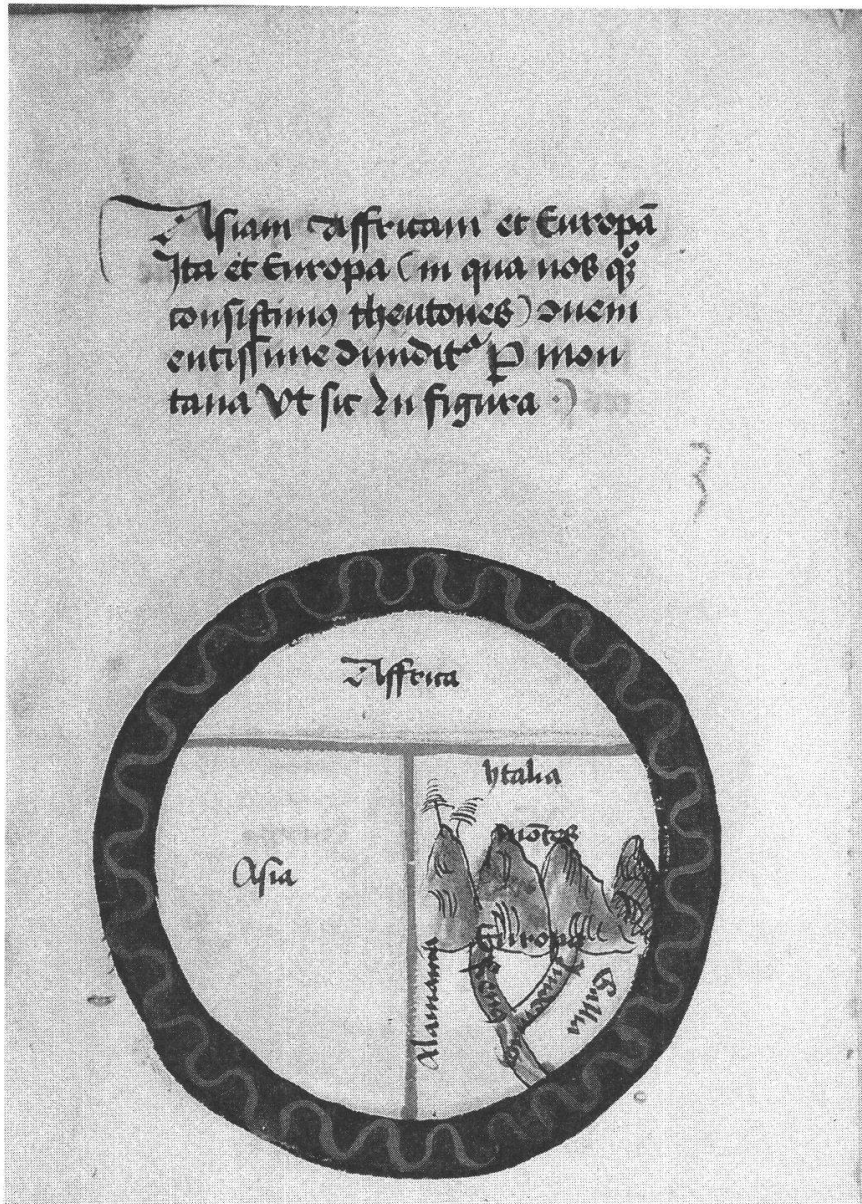 Asiam Affricam et Europā
Ita et Europa (in qua nos qꝫ
consistimus theutones) conueni
entissime diuidit᷑ ꝑ mon
tana Vt sic In figura
Affrica
ytalia
mōtes
Asia
Europa
Alamania
Renus
Gallia